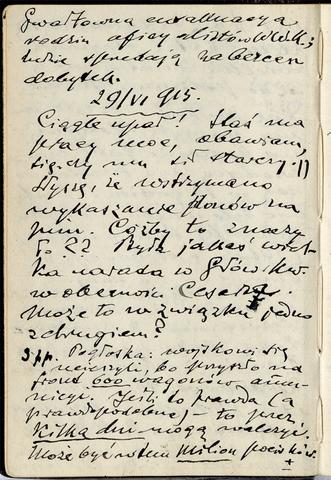 Gwałtowna ewakuacya
rodzin oficyalistów W.W.;
ludzie sprzedają za bezcen
dobytek.
29/VI 915.
Ciągle upał! Staś ma
pracy moc, obawiam
się, czy mu sił starczy.
Słyszę, że wstrzymano
wykaszanie plonów na
pniu. Cóżby to znaczy
ło?? Była jakaś wiel-
ka narada w Główn. kw.
w obecności Cesarza.
Może to w związku jedno
z drugiem?
3 pp. Pogłoska: wojskowi się
ucieszyli, bo przyszło na
front 600 wagonów amu-
nicyi. Jeśli to prawda (a
prawdopodobne) – to przez
kilka dni mogą walczyć.
Może być w tem milion pocisków.